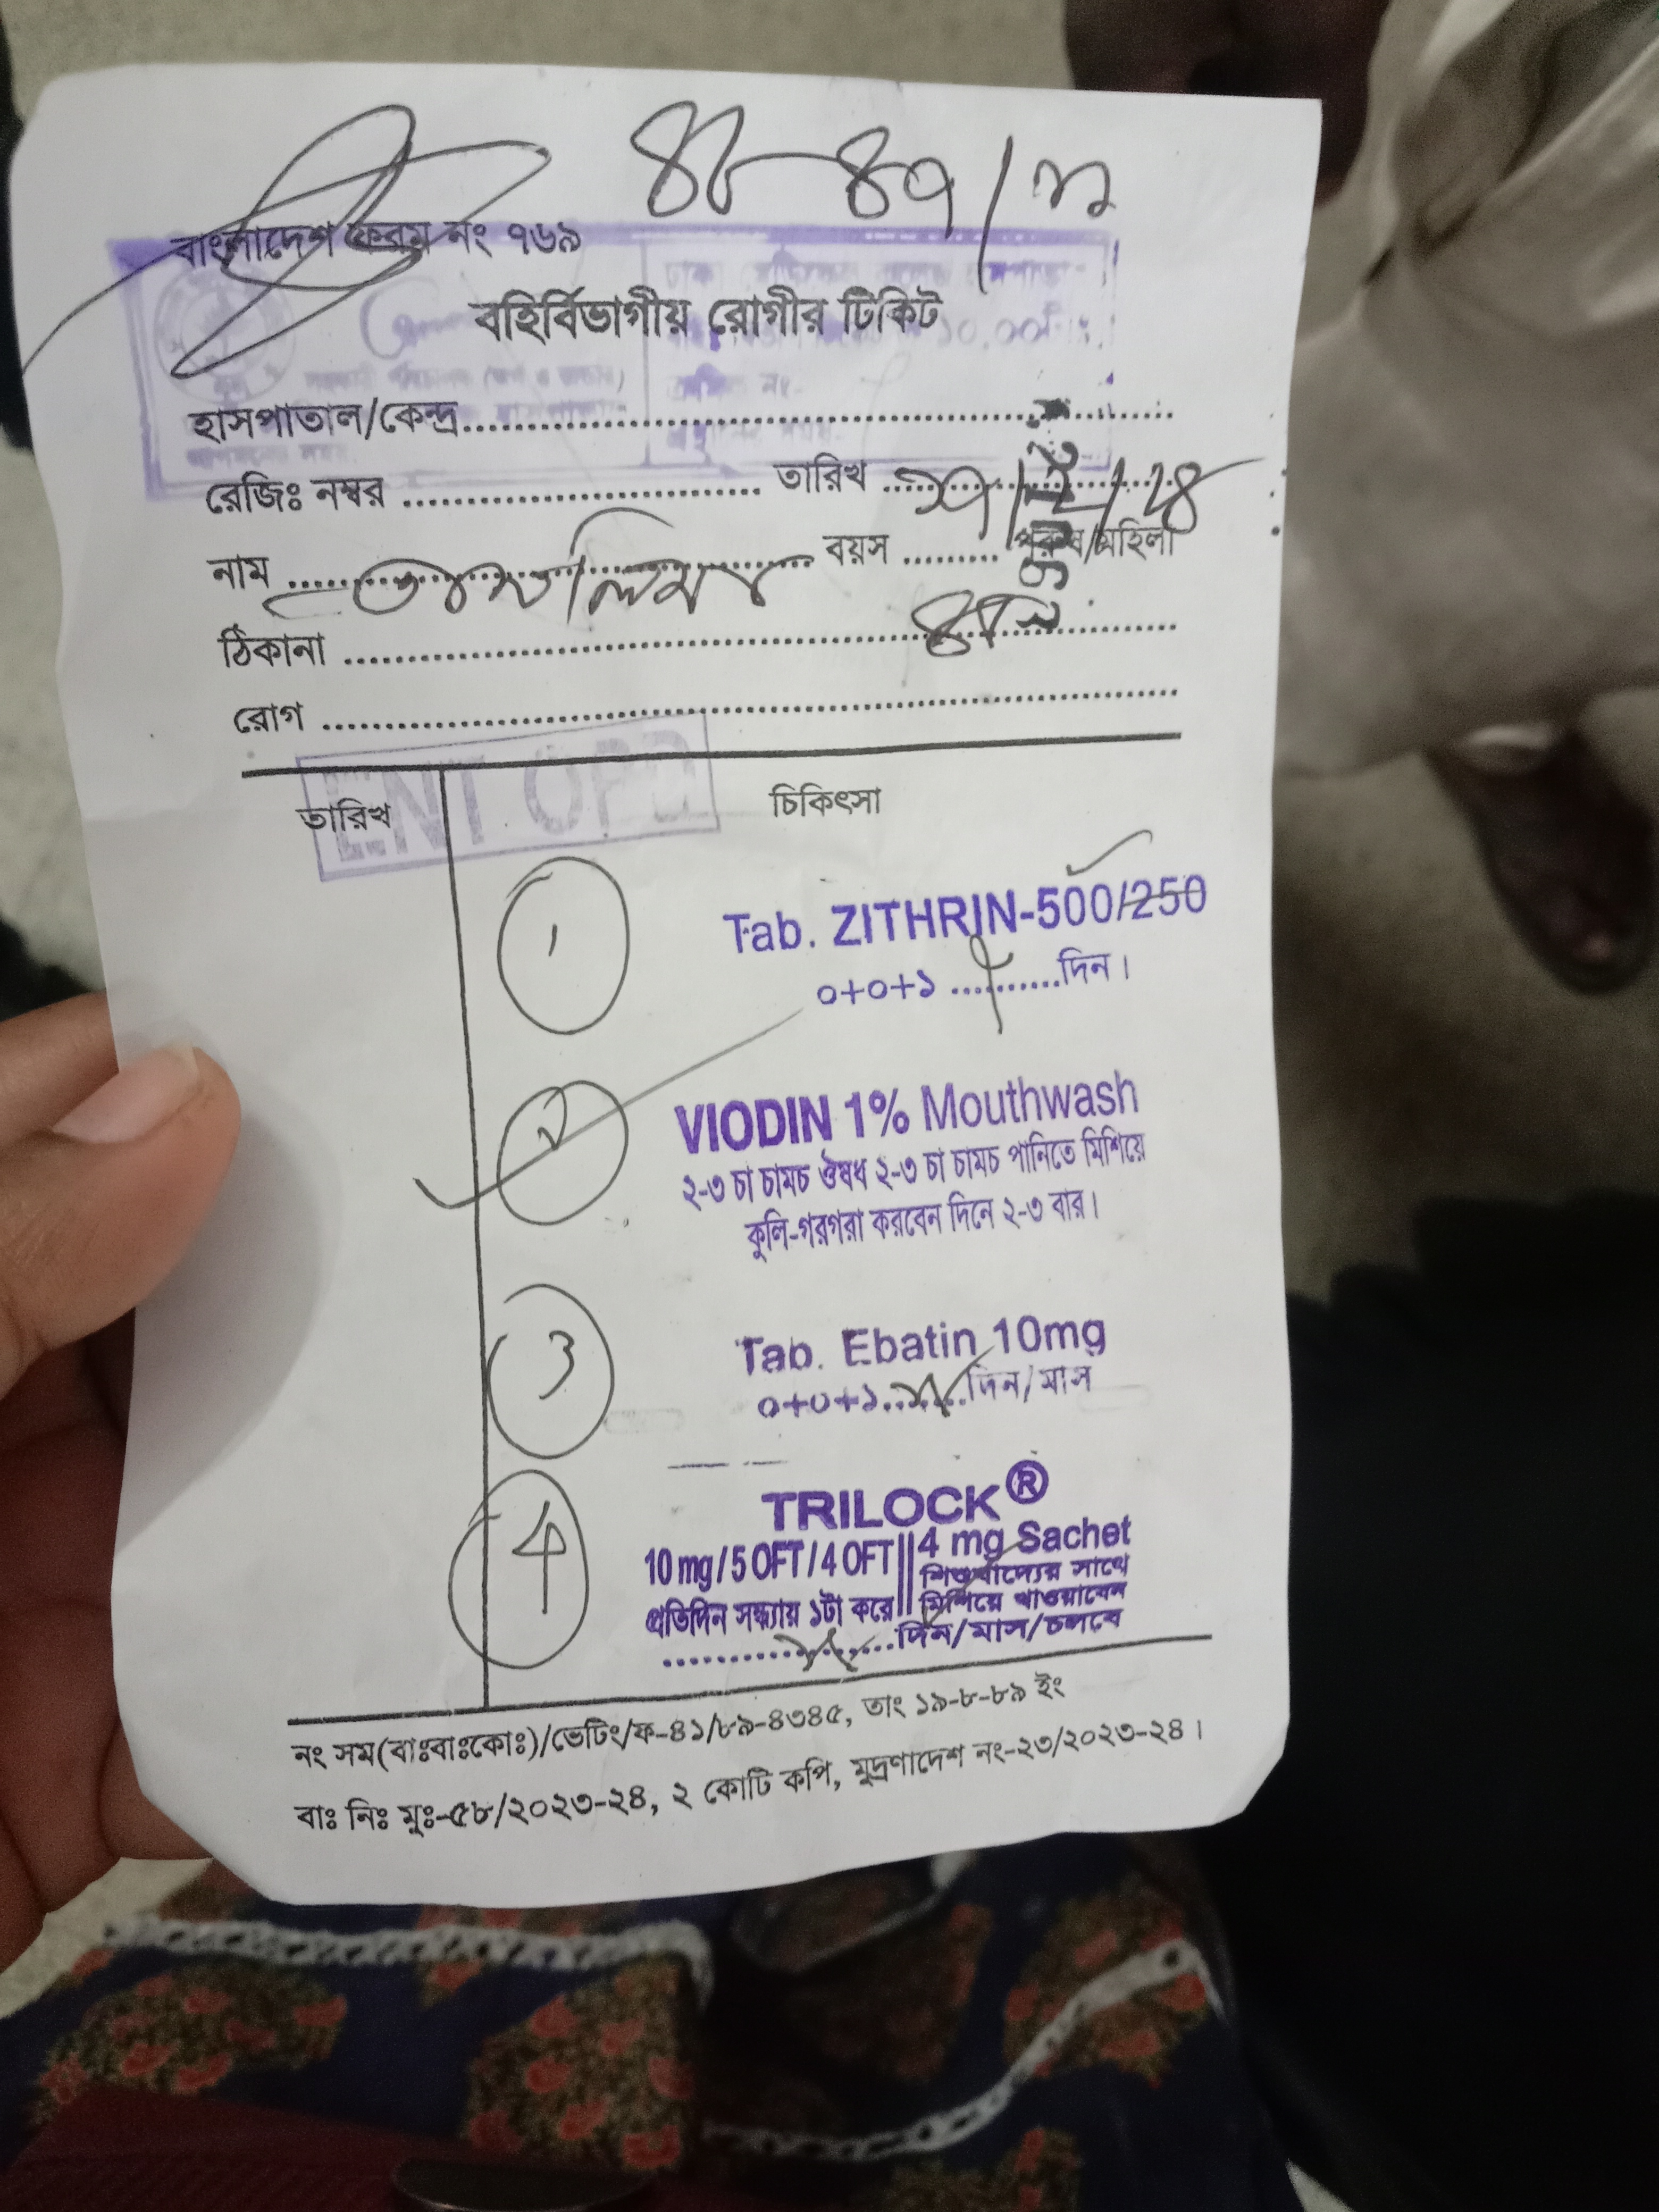 বাংলাদেশ ফরম নং ৭৬৯
বহির্বিভাগীয় রোগীর টিকিট
১০.০০
হাসপাতাল/কেন্দ্র
রেজিঃ নম্বর তারিখ
নাম বয়স পুরুষ/মহিলা
ঠিকানা
রোগ
ENT OPD
তারিখ চিকিৎসা
১ Tab. ZITHRIN-500/250
০+০+১ ৭ দিন।
২ VIODIN 1% Mouthwash
২-৩ চা চামচ ঔষধ ২-৩ চা চামচ পানিতে মিশিয়ে
কুলি-গরগরা করবেন দিনে ২-৩ বার।
3 Tab. Ebatin 10mg
০+০+১ দিন/মাস
4 TRILOCK®
10 mg/5 OFT/4 OFT || 4 mg Sachet
প্রতিদিন সন্ধ্যায় ১টা করে || শিশুখাদ্যের সাথে মিশিয়ে খাওয়াবেন
দিন/মাস/চলবে
নং সম(বাঃবাঃকোঃ)/ভেটিং/ফ-৪১/৮৯-৪৩৪৫, তাং ১৯-৮-৮৯ ইং
বাঃ নিঃ মুঃ-৫৮/২০২৩-২৪, ২ কোটি কপি, মুদ্রণাদেশ নং-২৩/২০২৩-২৪।